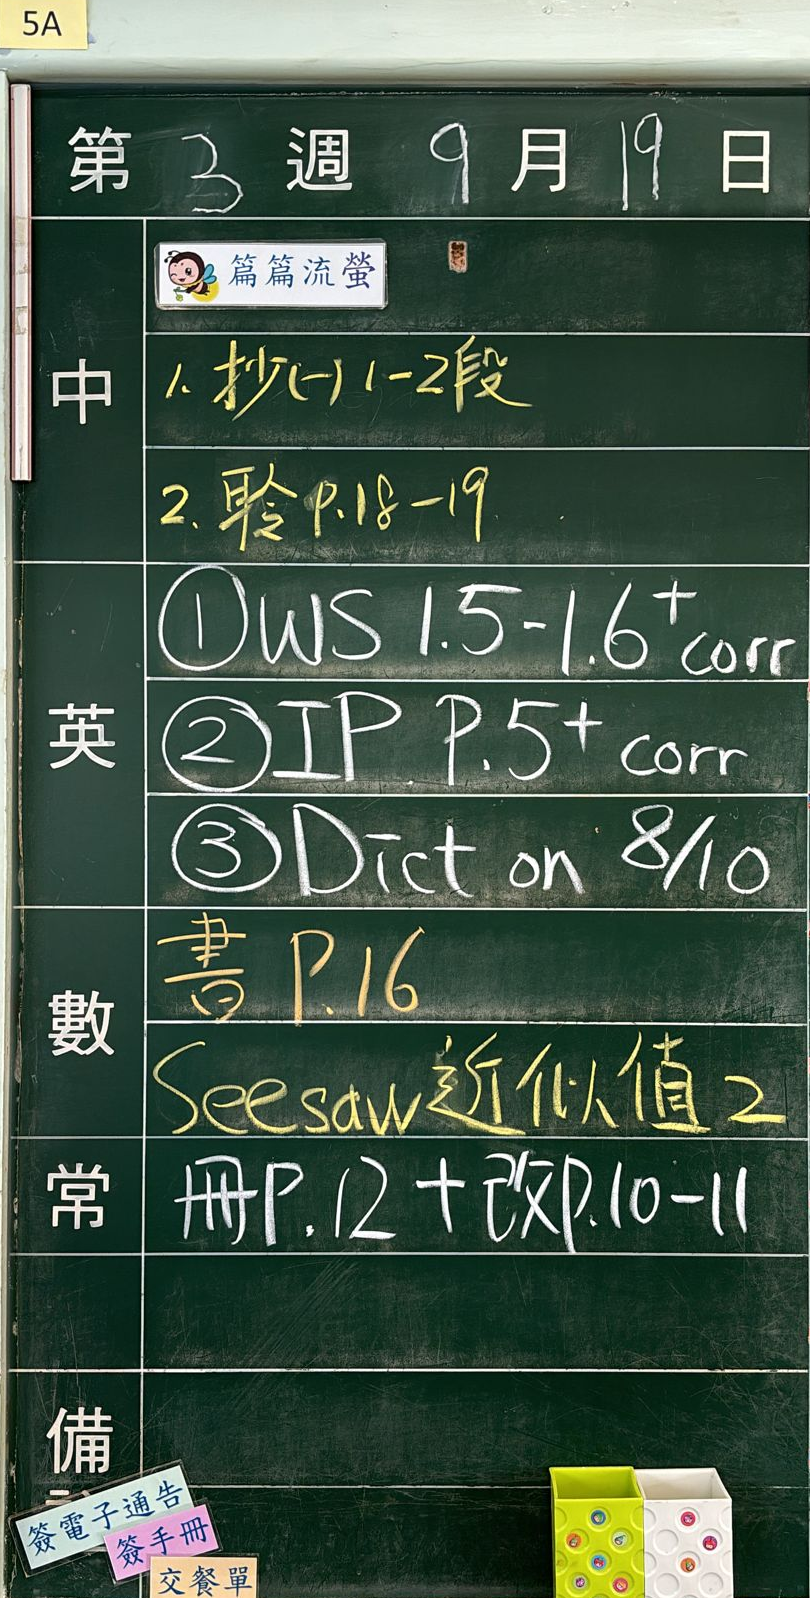 5A
第 3 週 9 月 19 日
篇篇流螢
中
1. 抄(一) 1-2段
2. 聆 P.18-19
英
① WS 1.5-1.6 + corr
② IP P.5 + corr
③ Dict on 8/10
數
書 P.16
Seesaw 近似值 2
常
冊P.12 + 改P.10-11
備
簽電子通告
簽手冊
交餐單